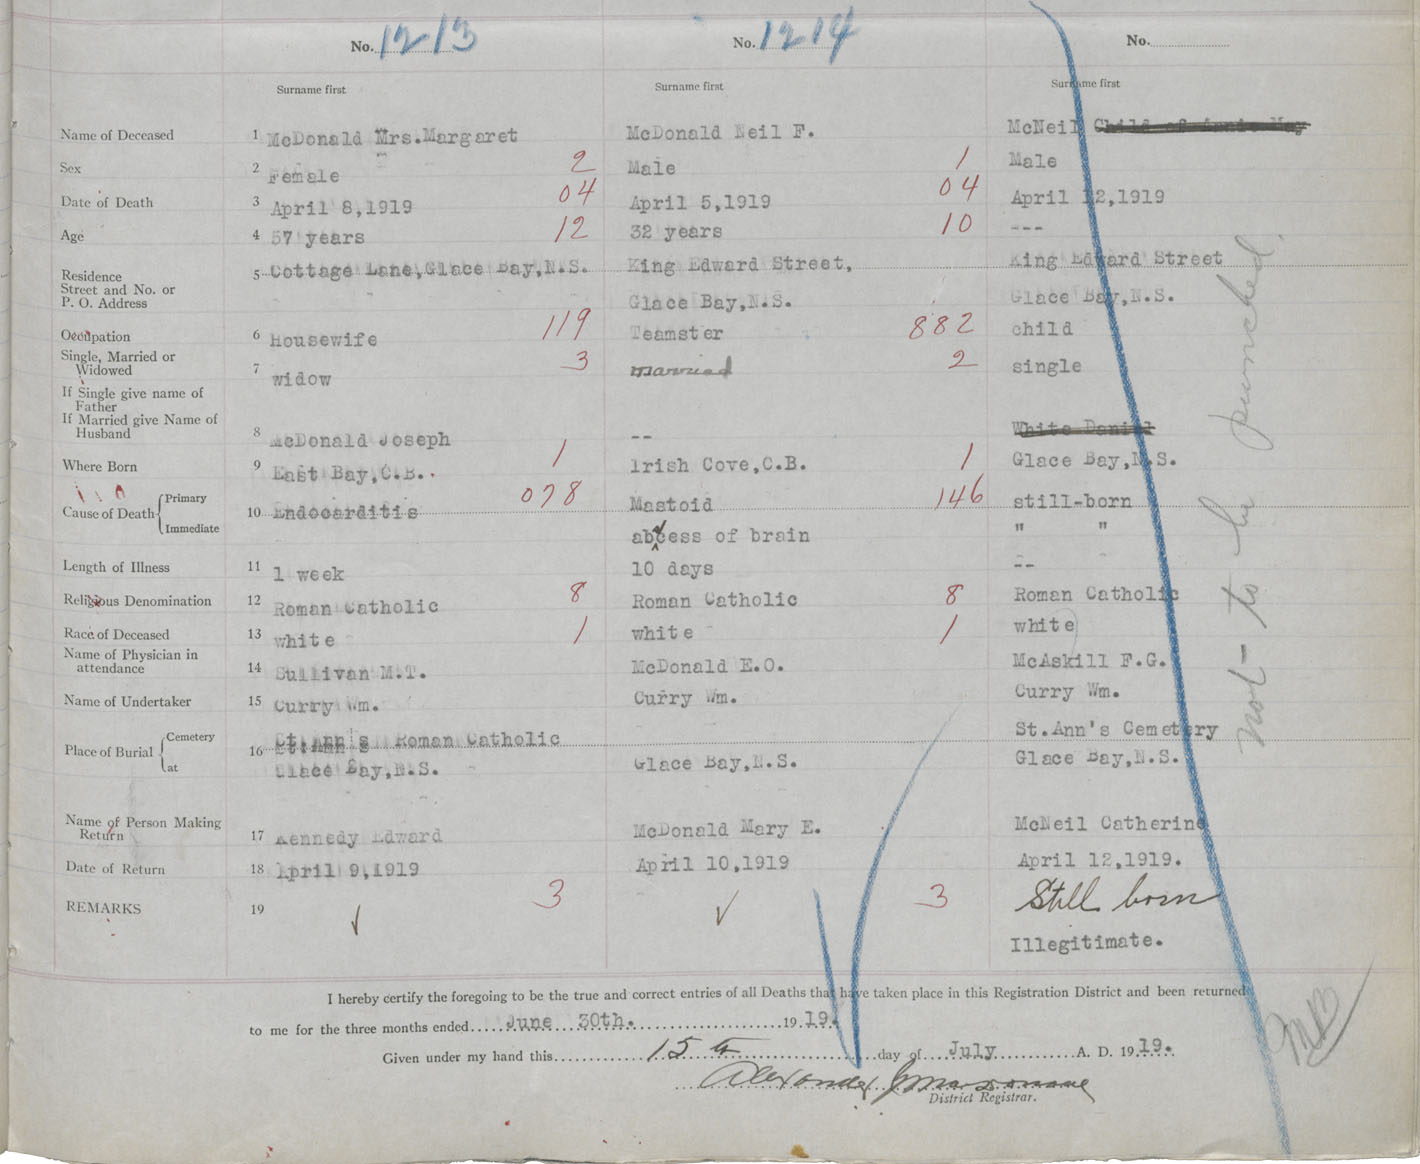 No. 1213 No. 1214 No.
Surname first Surname first Surname first
Name of Deceased 1 McDonald Mrs.Margaret McDonald Neil F. McNeil Child of Annie May
Sex 2 Female 2 Male 1 Male
Date of Death 3 April 8,1919 04 April 5,1919 04 April 12,1919
Age 4 57 years 12 32 years 10 ---
Residence
Street and No. or
P. O. Address
5 Cottage Lane,Glace Bay,N.S. King Edward Street, King Edward Street
Glace Bay,N.S. Glace Bay,N.S.
Occupation 6 Housewife 119 Teamster 882 child
Single, Married or
Widowed 7 widow 3 married 2 single
If Single give name of
Father
If Married give Name of
Husband 8 McDonald Joseph -- White Daniel
Where Born 9 East Bay,C.B. 1 Irish Cove,C.B. 1 Glace Bay,N.S.
Cause of Death Primary 10 Endocarditis 078 Mastoid 146 still-born
Immediate abcess of brain " "
Length of Illness 11 1 week 10 days --
Religious Denomination 12 Roman Catholic 8 Roman Catholic 8 Roman Catholic
Race of Deceased 13 white 1 white 1 white
Name of Physician in
attendance 14 Sullivan M.T. McDonald E.O. McAskill F.G.
Name of Undertaker 15 Curry Wm. Curry Wm. Curry Wm.
Place of Burial Cemetery 16 St.Ann's Roman Catholic St.Ann's Cemetery
at Glace Bay,N.S. Glace Bay,N.S. Glace Bay,N.S.
Name of Person Making
Return 17 Kennedy Edward McDonald Mary E. McNeil Catherine
Date of Return 18 April 9,1919 April 10,1919 April 12,1919.
REMARKS 19 3 3 Still born
Illegitimate.
not to be punched.
I hereby certify the foregoing to be the true and correct entries of all Deaths that have taken place in this Registration District and been returned
to me for the three months ended June 30th. 1919.
Given under my hand this 15th day of July A. D. 1919.
Alexander
District Registrar.